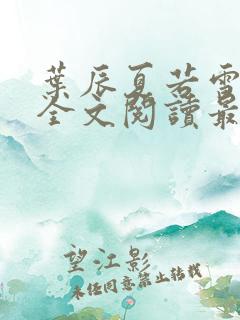 葉辰夏若雪
全文閱讀最
望江影
未经同意禁止转载